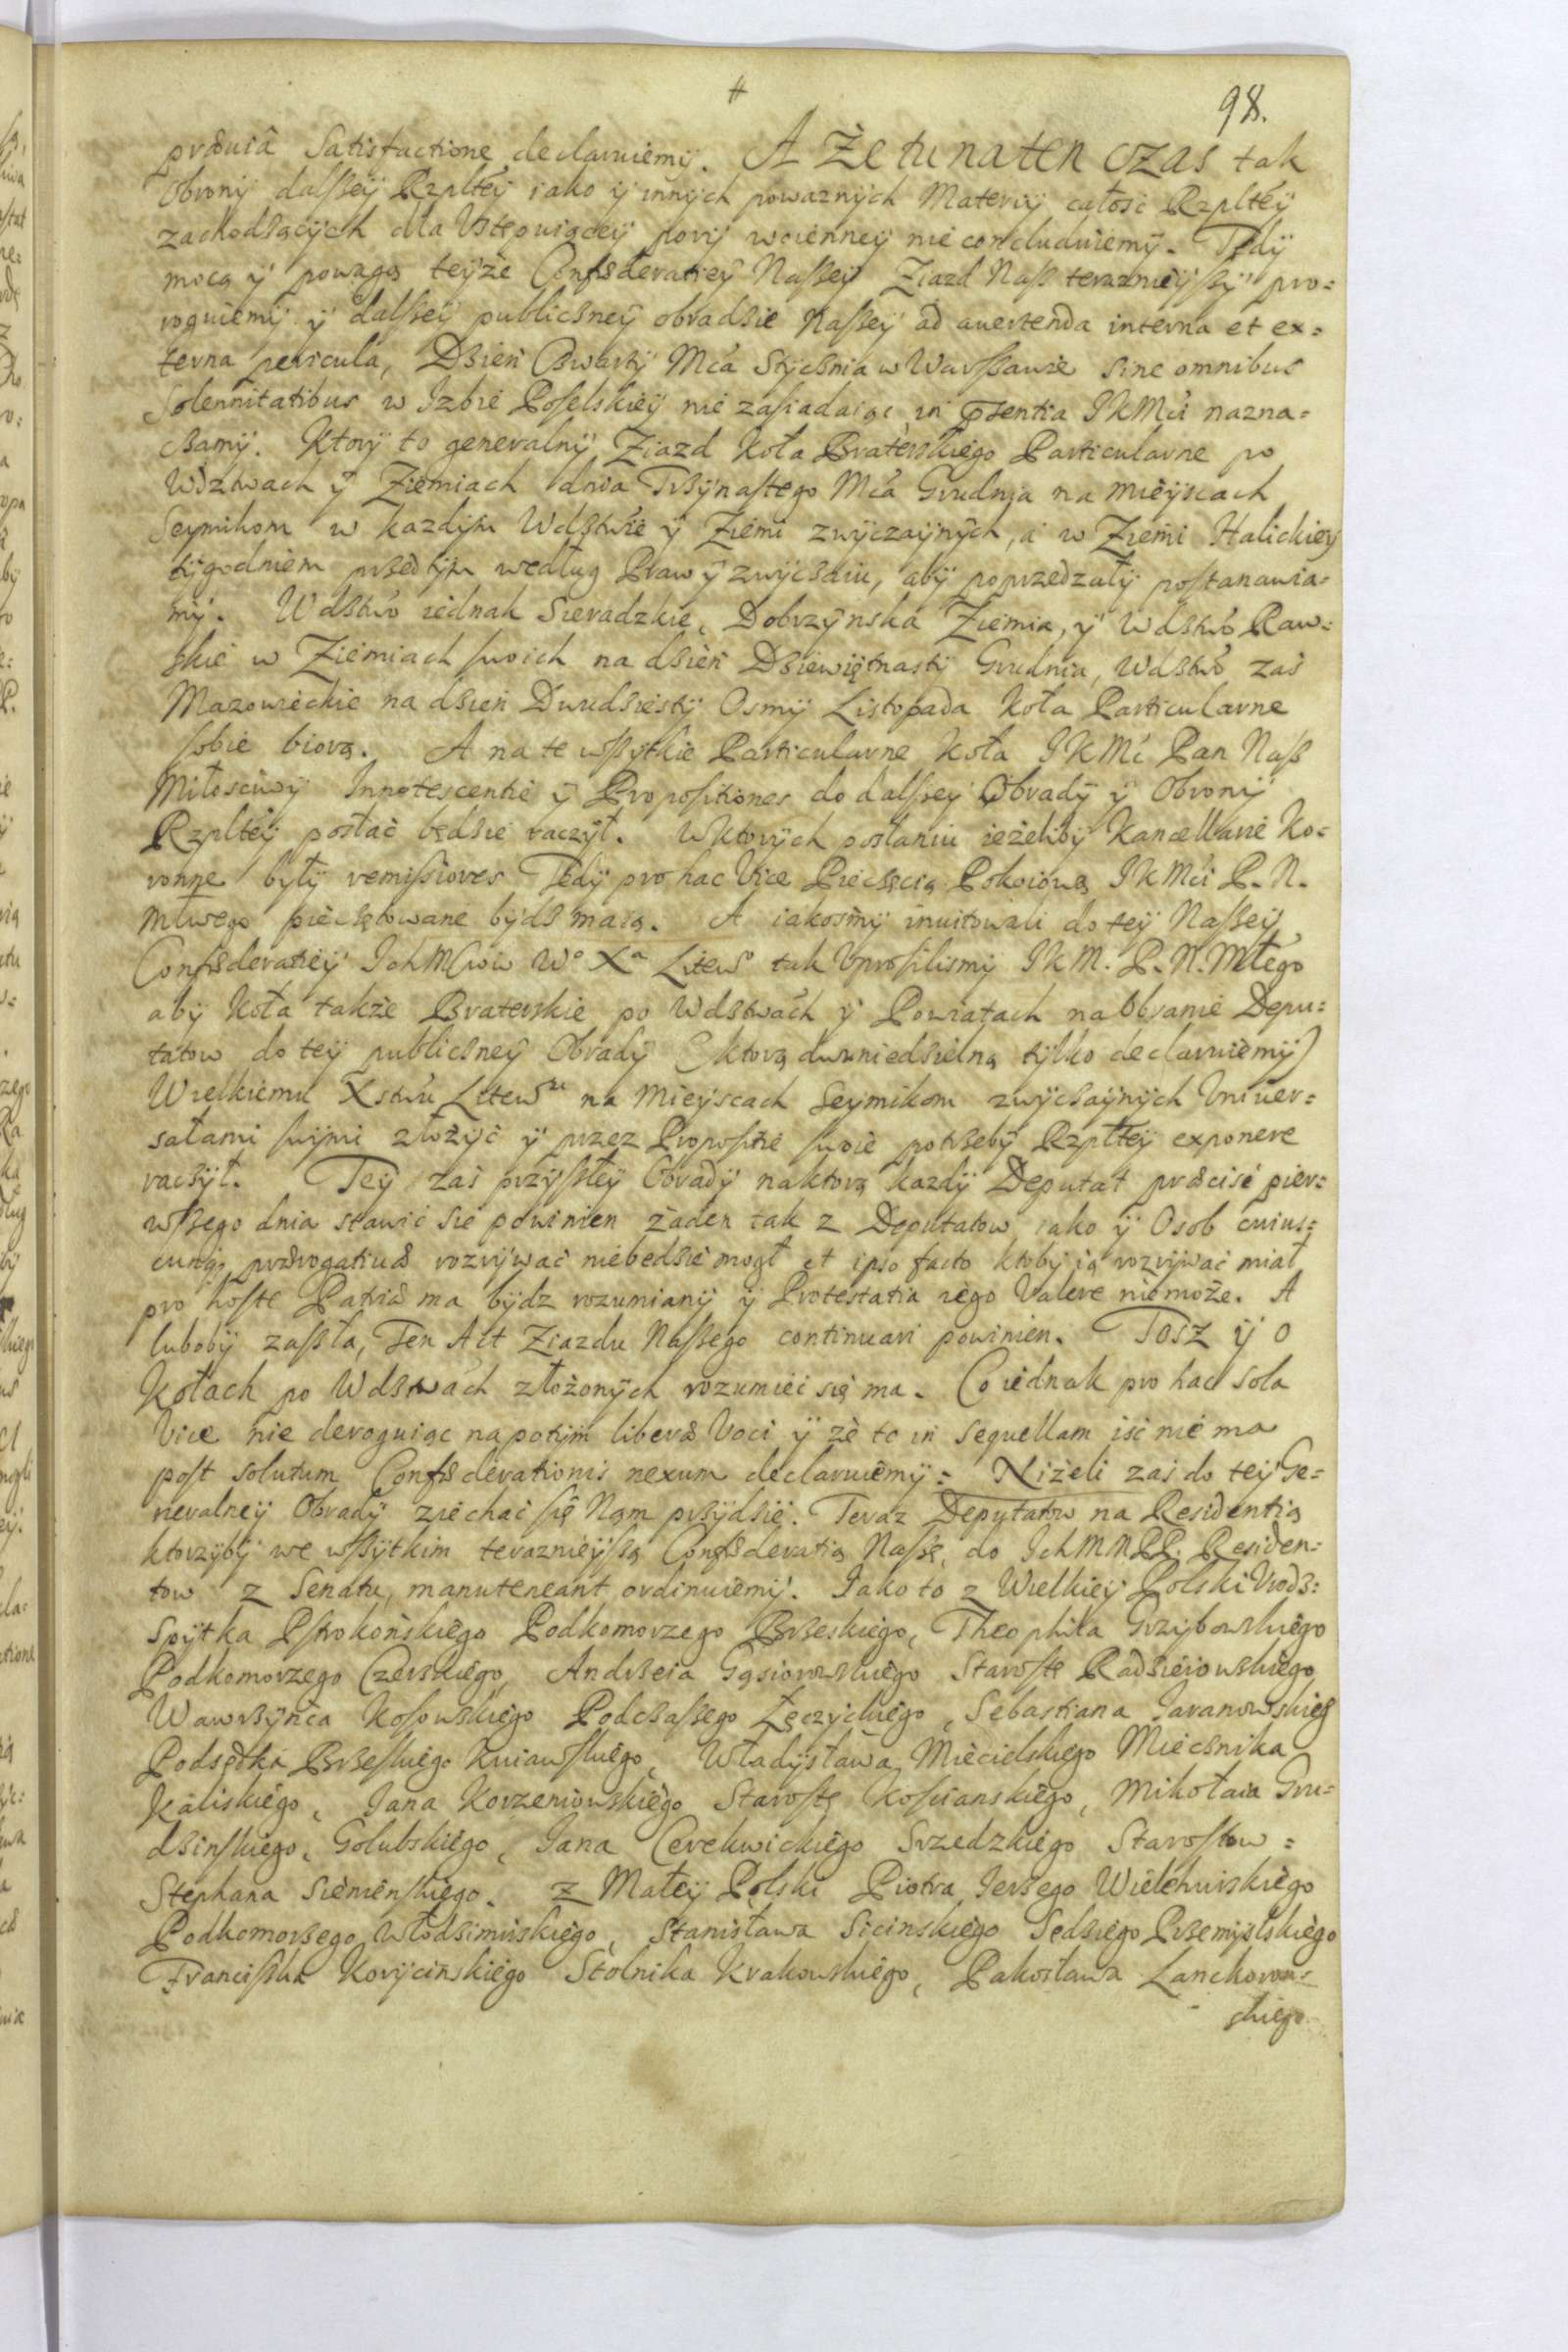 #
98.
præuia Satisfactione declaruiemy. A że tu na ten czas tak
Obrony dalszey Rzpltey iako y innych powaznych Materiy całosc Rzpltey
zachodzących dla Vstępuiącey pory woienney nie concluduiemy. Tedy
mocą y powagą teyże Confæderatiey Naszey Ziazd Nasz teraznieyszy pro=
roguiemy y dalszey publiczney obradzie Naszey ad auertenda interna et ex=
terna pericula, Dzien Czwarty Mca Stycznia w Warszawie sine omnibus
Solennitatibus w Izbie Poselskiey nie zasiadaiąc in præsentia IKMci nazna=
czamy. Ktory to generalny Ziazd Koła Braterskiego Particularne po
Wdztwach y Ziemiach dnia Trzynastego Mca Grudnia na mieyscach
Seymikom w kazdym Wdztwie y Ziemi zwyczaynych, a w Ziemi Halickiey
tygodniem przedtym według Prawa y zwyczaiu, aby poprzedzały postanawia=
my. Wdztwo iednak Sieradzkie, Dobrzynska Ziemia, y Wdztwo Raw=
skie w Ziemiach swoich na dzien Dziewiętnasty Grudnia, Wdztwo zaś
Mazowieckie na dzien Dwudziesty Osmy Listopada Koła Particularne
sobie biorą. A na te wszytkie Particularne Koła IKMć Pan Nasz
Miłosciwy Innotescentie y Propositiones do dalszey Obrady y Obrony
Rzpltey posłać będzie raczył. W ktorych posłaniu ieżeliby Kancellarie Ko=
ronne były remissiores Tedy pro hac Vice Pieczęcią Pokoiową IKMci P. N.
Młwego pieczętowane bydz maią. A iakosmy inuitowali do tey Naszey
Confæderatiey Ich Mćiow Wo Xa Litewo tak Vprosilismy IKM. P. N. Młego
aby Koła także Braterskie po Wdztwach y Powiatach na Obranie Depu=
tatow do tey publiczney Obrady (ktorą dwuniedzielną tylko declaruiemy)
Wielkiemu Xstwu Litewmu na Mieyscach Seymikom zwyczaynych Vniuer=
sałami swymi złożyć y przez Propositie swoie potrzeby Rzpltey exponere
raczył. Tey zaś przyszłey Obrady na ktorą kazdy Deputat præcise pier=
wszego dnia stawić się powinien żaden tak z Deputatow iako y Osob cuius=
cunq; prærogatiuæ rozrywać niebędzie mogł et ipso facto ktoby ią rozrywać miał
pro hoste Patriæ ma bydz rozumiany y Protestatia iego Valere niemoże. A
luboby zaszła, Ten Act Ziazdu Naszego continuari powinien. Tosz y o
Kołach po Wdztwach złożonych rozumieć się ma. Co iednak pro hac sola
Vice nie deroguiąc napotym liberæ Voci y że to in sequellam isć nie ma
post solutum Confæderationis nexum declaruiemy: Niżeli zaś do tey Ge=
neralney Obrady ziechać się Nam przydzie. Teraz Deputatow na Residentią
ktorzyby we wszytkim teraznieyszą Confæderatią Naszę, do Ich MM PP. Residen=
tow z Senatu, manuteneant ordinuiemy. Iako to z Wielkiey Polski Vrodz:
Spytka Pstrokońskiego Podkomorzego Brzeskiego, Theophila Grzybowskiego
Podkomorzego Czerskiego, Andrzeia Gąsiorowskiego Staroste Radzieiowskiego
Wawrzynca Kosowskiego Podczaszego Łęczyckiego, Sebastiana Iaranowskieg
Podsędka Brzeskiego Kuiawskiego, Władysława Miecielskiego Miecznika
Kaliskiego, Iana Korzeniowskiego Starostę Koscianskiego, Mikołaia Gru=
dzinskiego, Golubskiego, Iana Cerekwickiego Srzedzkiego Starostow=
Stephana Siemienskiego. z Małey Polski Piotra Ierzego Wielehurskiego
Podkomorzego Włodzimirskiego, Stanisława Sicinskiego Sędziego Przemyslskiego
Franciszka Korycinskiego Stolnika Krakowskiego, Pakosława Lanckoron=
skiego